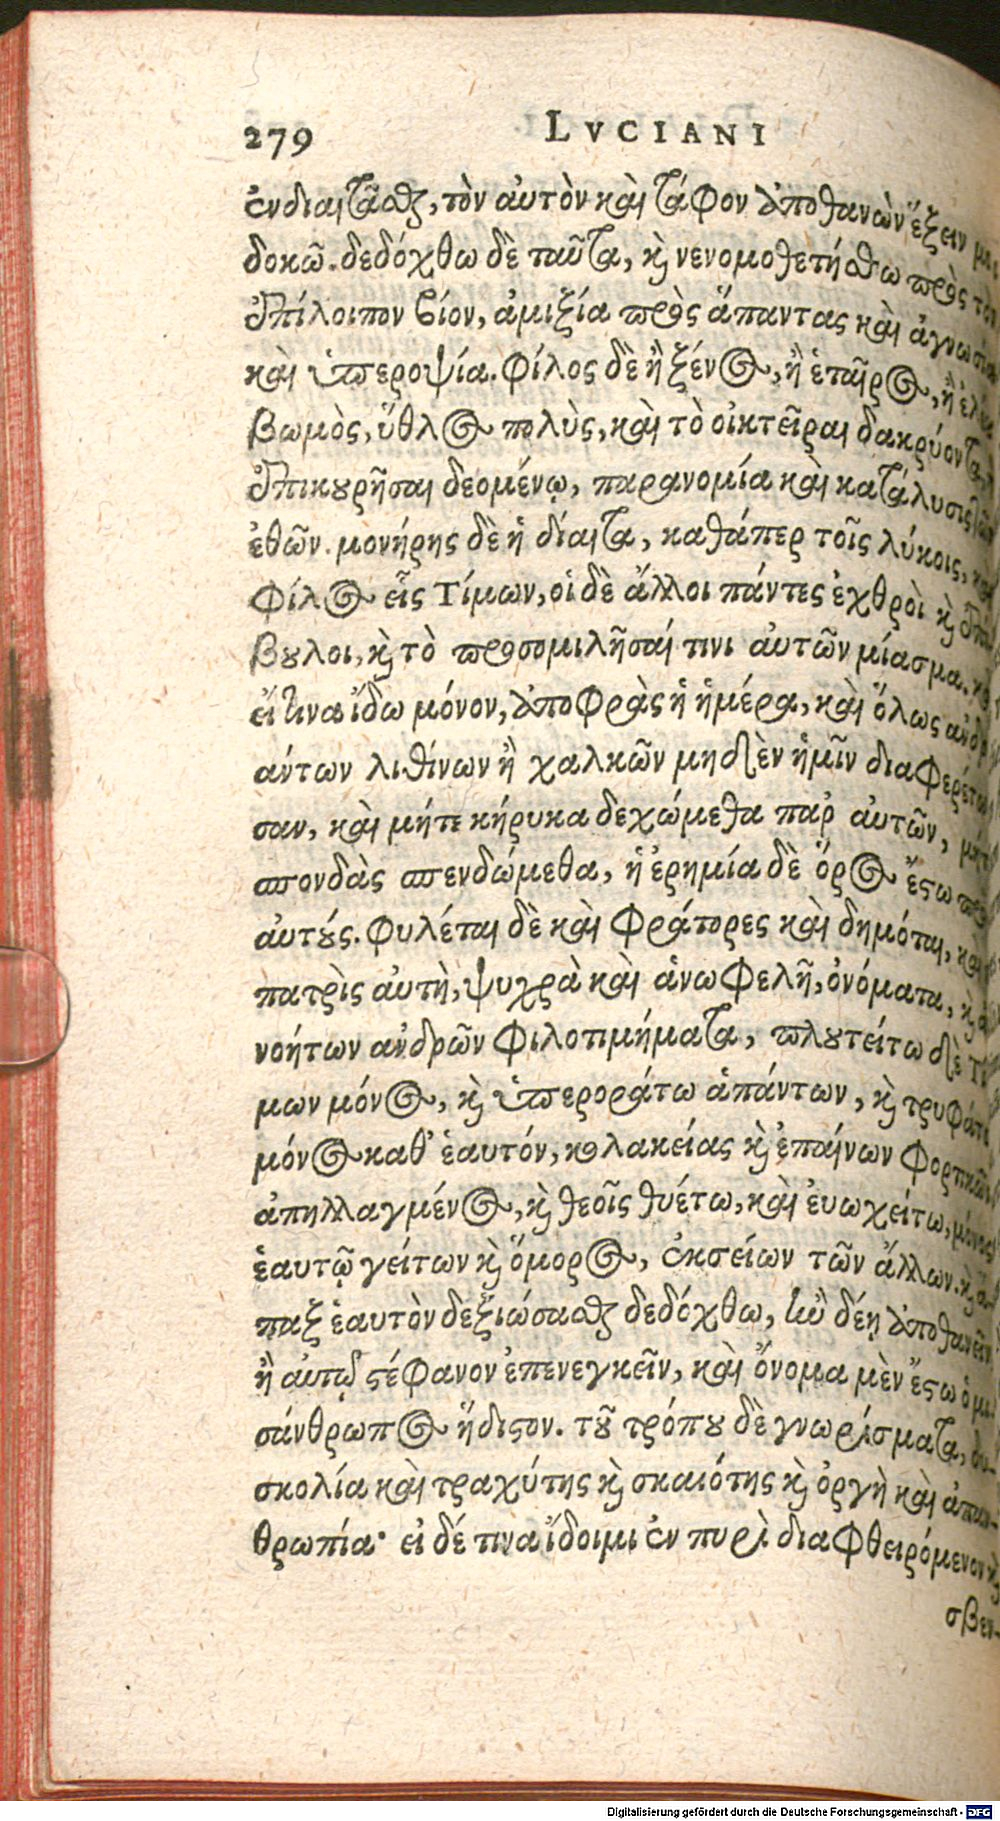 279 LVCIANI
ἐνδιαιτᾶσθαι, τὸν αὐτὸν καὶ τάφον ἀποθανὼν ἕξειν μοι
δοκῶ. δεδόχθω δὲ ταῦτα, καὶ νενομοθετήσθω πρὸς τὸν
ἐπίλοιπον βίον, ἀμιξία πρὸς ἅπαντας καὶ ἀγνωσία
καὶ ὑπεροψία. φίλος δὲ ἢ ξένος, ἢ ἑταῖρος, ἢ ἐλέου
βωμὸς, ὕθλος πολὺς, καὶ τὸ οἰκτεῖραι δακρύοντα, ἢ
ἐπικουρῆσαι δεομένῳ, παρανομία καὶ κατάλυσις τῶν
ἐθῶν. μονήρης δὲ ἡ δίαιτα, καθάπερ τοῖς λύκοις, καὶ
φίλος εἷς Τίμων, οἱ δὲ ἄλλοι πάντες ἐχθροὶ καὶ ἐπί-
βουλοι, καὶ τὸ προσομιλῆσαί τινι αὐτῶν μίασμα. καὶ
εἴ τινα ἴδω μόνον, ἀποφρὰς ἡ ἡμέρα, καὶ ὅλως ἀνδρι
άντων λιθίνων ἢ χαλκῶν μηδὲν ἡμῖν διαφερέτω
σαν, καὶ μήτε κήρυκα δεχώμεθα παρ αὐτῶν, μήτε
σπονδὰς σπενδώμεθα, ἡ ἐρημία δὲ ὅρος ἔστω πρὸς
αὐτούς. φυλέται δὲ καὶ φράτορες καὶ δημόται, καὶ ἡ
πατρὶς αὐτὴ, ψυχρὰ καὶ ἀνωφελῆ, ὀνόματα, καὶ ἀ
νοήτων ἀνδρῶν φιλοτιμήματα, πλουτείτω δὲ Τί
μων μόνος, καὶ ὑπεροράτω ἁπάντων, καὶ τρυφάτω
μόνος καθ' ἑαυτόν, κολακείας καὶ ἐπαίνων φορτικῶν
ἀπηλλαγμένος, καὶ θεοῖς θυέτω, καὶ εὐωχείτω, μόνος
ἑαυτῷ γείτων καὶ ὅμορος, ἐκσείων τῶν ἄλλων. καὶ ἅ-
παξ ἑαυτὸν δεξιώσασθαι δεδόχθω, ἢν δέῃ ἀποθανεῖν
ἢ αὑτῷ στέφανον ἐπενεγκεῖν, καὶ ὄνομα μὲν ἔστω ὁ μι-
σάνθρωπος ἥδιστον. τοῦ τρόπου δὲ γνωρίσματα, δυ-
σκολία καὶ τραχύτης καὶ σκαιότης καὶ ὀργὴ καὶ ἀπαν-
θρωπία· εἰ δέ τινα ἴδοιμι ἐν πυρὶ διαφθειρόμενον καὶ
σβεν-
Digitalisierung gefördert durch die Deutsche Forschungsgemeinschaft - DFG